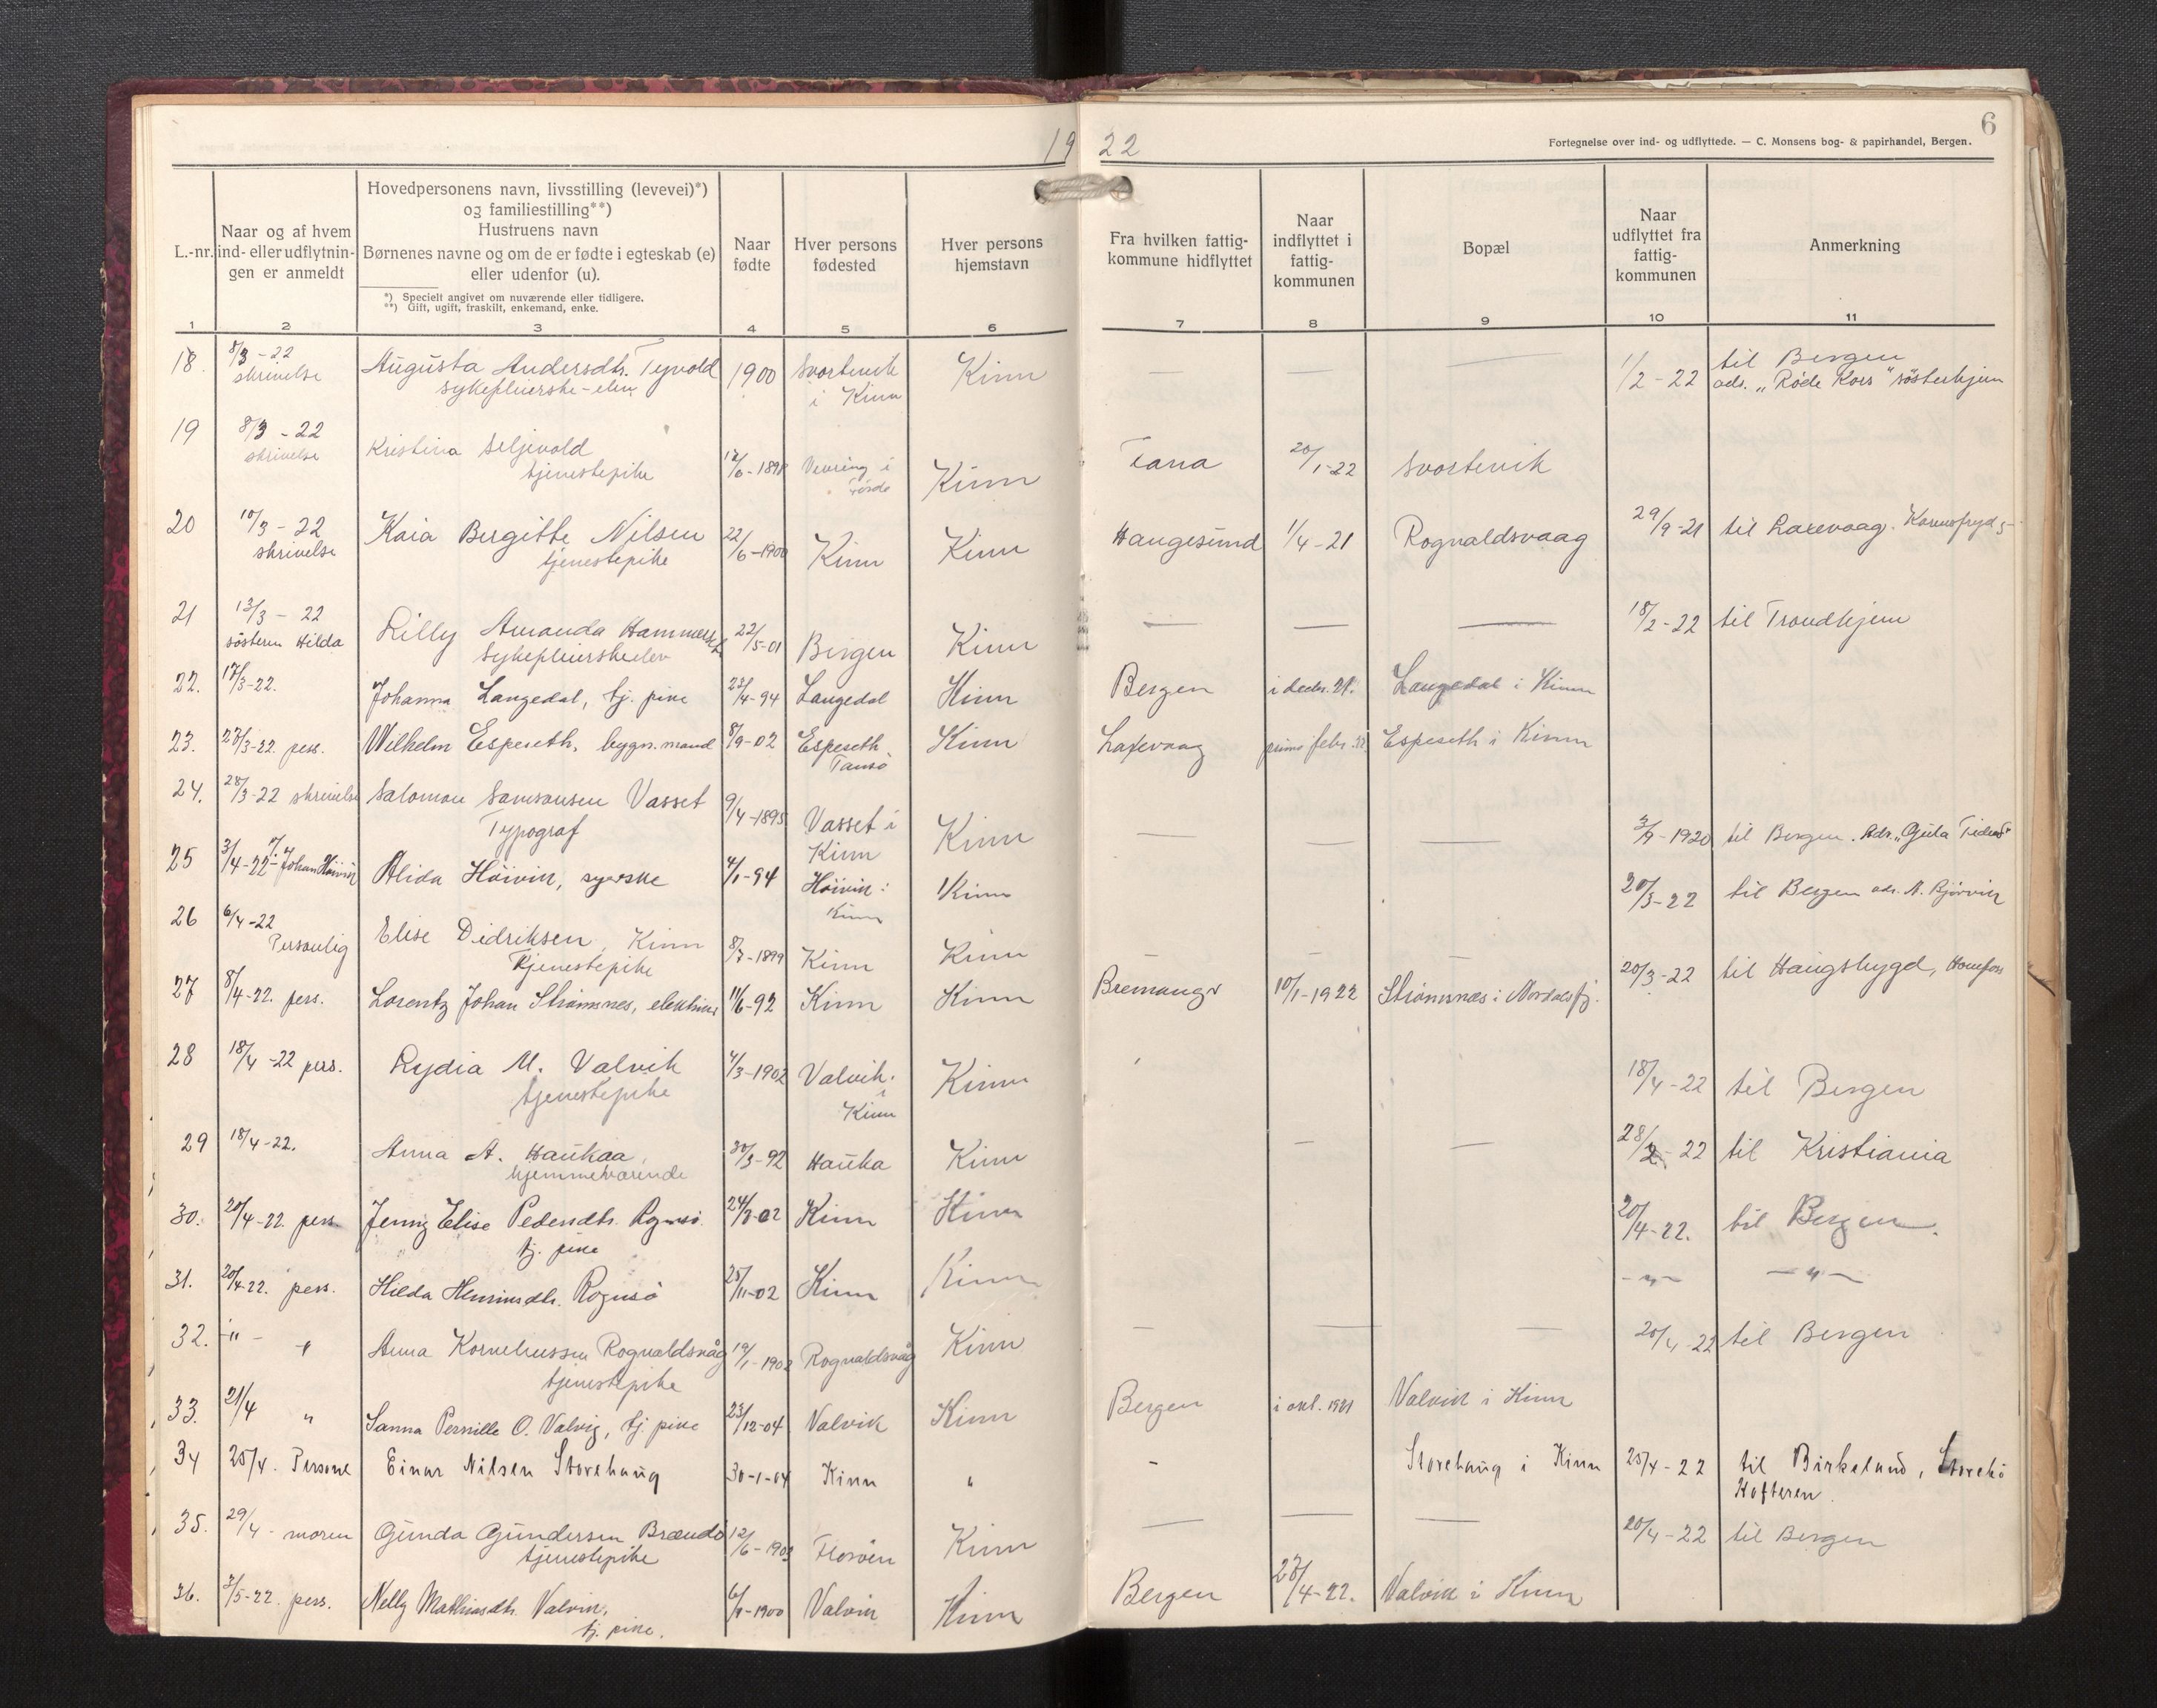 19 22
6
Fortegnelse over ind- og udflyttede. — C. Monsens bog- & papirhandel, Bergen.
L.-nr.
Naar og af hvem
ind- eller udflytnin-
gen er anmeldt
Hovedpersonens navn, livsstilling (levevei)*)
og familiestilling**)
Hustruens navn
Børnenes navne og om de er fødte i egteskab (e)
eller udenfor (u).
*) Specielt angivet om nuværende eller tidligere.
**) Gift, ugift, fraskilt, enkemand, enke.
Naar
fødte
Hver persons
fødested
Hver persons
hjemstavn
Fra hvilken fattig-
kommune hidflyttet
Naar
indflyttet i
fattig-
kommunen
Bopæl
Naar
udflyttet fra
fattig-
kommunen
Anmerkning
1 2 3 4 5 6 7 8 9 10 11
18. 8/3-22 Augusta Andersdtr. Tyvold 1900 Svortevik Kinn — — — 1/2-22 til Bergen
skrivelse sykepleierske-elev i Kinn ads. „Røde Kors" søsterhjem
19 8/3-22 Kristina Seljevold 12/6-1898 Vevring i Kinn Fana 20/1-22 Svortevik
skrivelse tjenestepike Førde
20 10/3-22 Kaia Bergitte Nilsen 22/6-1900 Kinn Kinn Haugesund 1/4-21 Rognaldsvaag 29/9-21 til Laxevaag.
skrivelse tjenestepike
21 13/3-22 Lilly Amanda 22/5-01 Bergen Kinn — — — 18/2-22 til Trondhjem
søsteren Hilda Sykepleierskeelev
22. 17/3-22. Johanna Langedal, tj. pike 23/4-94 Langedal Kinn Bergen i decbr. 21. Langedal i Kinn
23. 27/3-22. pers. Wilhelm Espeseth, bygn.mand 8/9-02 Espeseth Kinn Laxevaag primo febr. 22 Espeseth i Kinn
Tansø
24. 28/3-22 skrivelse Salomon Samsonsen Vasset 9/4-1895 Vasset i Kinn — — — 3/9-1920 til Bergen. Adr. „Gula Tidend"
Typograf Kinn
25 3/4-22 v. Johan Høivik Alida Høivik, syerske 4/1-94 Høivik i Kinn 20/3-22 til Bergen adr. A. Bjørvik
Kinn
26 6/4-22 Elise Didriksen, Kinn 8/7-1899 Kinn Kinn — — — 20/3-22 til Haugsbygd, Hønefoss
Personlig Tjenestepike
27 8/4-22. pers. Lorentz Johan Strømsnes, 11/6-92 Kinn Kinn Bremanger 10/1-1922 Strømsnes i Nordalsfj.
28 18/4-22 pers. Lydia M. Valvik 4/3-1902 Valvik Kinn 18/4-22 til Bergen
tjenestepike i Kinn
29 18/4-22. Anna A. Haukaa 30/3-92 Hauka Kinn — — 28/2-22 til Kristiania
hjemmeværende
30. 20/4-22. pers Jenny Elise Pedersdtr. Rognsø. 24/8-02 Kinn Kinn 20/4-22. til Bergen.
tj. pike
31. 20/4-22. pers. Hilda Rognsø 25/11-02 Kinn Kinn -"- -"-
32. -"- " Anna Korneliussen Rognaldsvåg 19/1-1902 Rognaldsvåg Kinn — — — 20/4 22 til Bergen
tjenestepike
33. 21/4 " Sanna Pernille O. Valvig, tj. pike 23/12-04 Valvik Kinn Bergen i okt. 1921 Valvik i Kinn
34 25/4. Personl Einar Nilsen Storehaug 30-1-04 Kinn " - Storehaug i Kinn 25/4-22 til Birkeland, Storebø
Hufteren.
35. 29/4- moren Gunda Gundersen Brandø 12/6-1903 Florøen Kinn — — — 20/4-22 til Bergen
tjenestepike
36. 3/5-22. pers. Nelly Mathiasdtr. Valvik, 6/9-1900 Valvik Kinn Bergen 27/4-22. Valvik i Kinn
tj. pike.